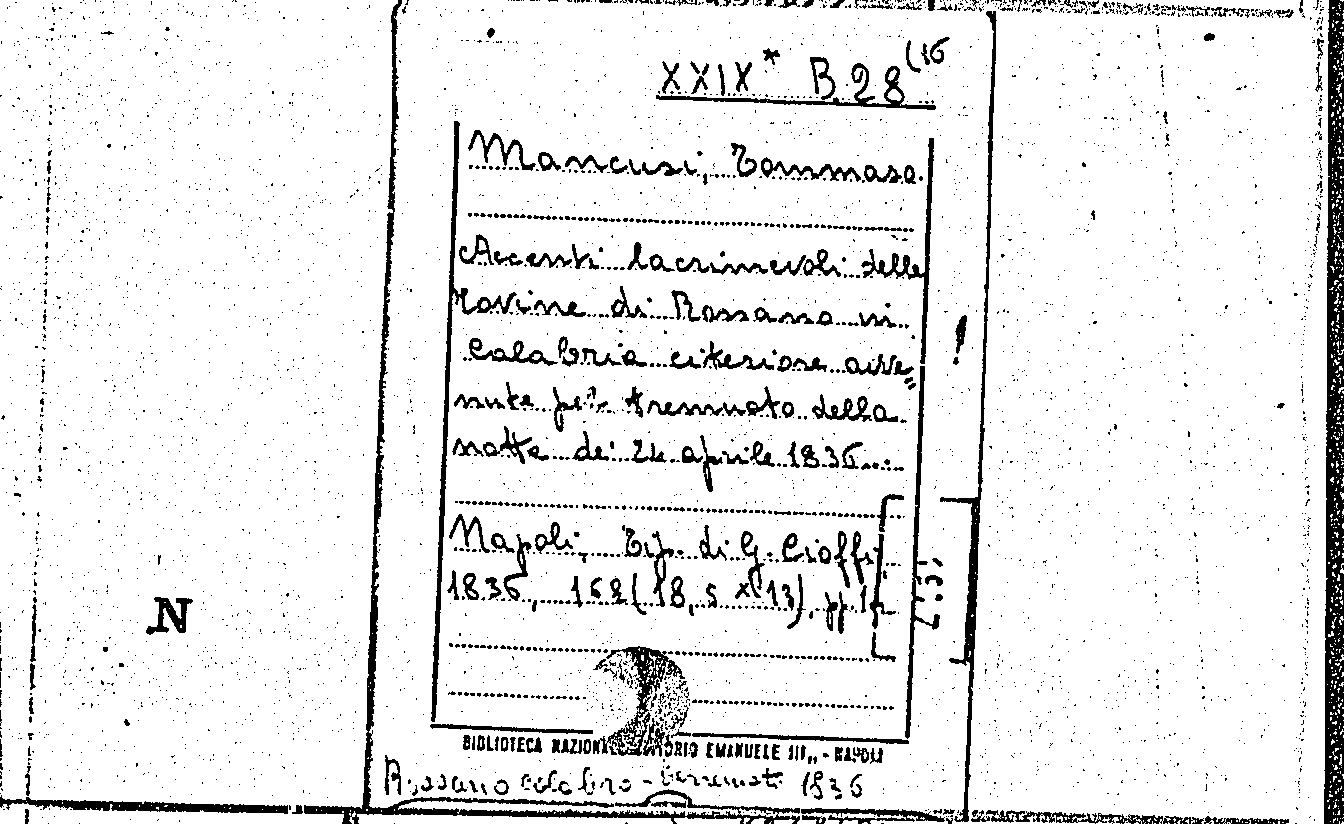 XXIX* B.28(16
Mancusi, Tommaso.
Accenti lacrimevoli delle
rovine di Rossano in
Calabria citeriore avve„
nute pel tremuoto della
notte dei 24 aprile 1836...
Napoli, Tip. di G. Cioffi
1836, 16º (18,5 x 13), pp.
N
BIBLIOTECA NAZIONALE VITTORIO EMANUELE III„ - NAPOLI
Rossano calabro - terremoti 1836